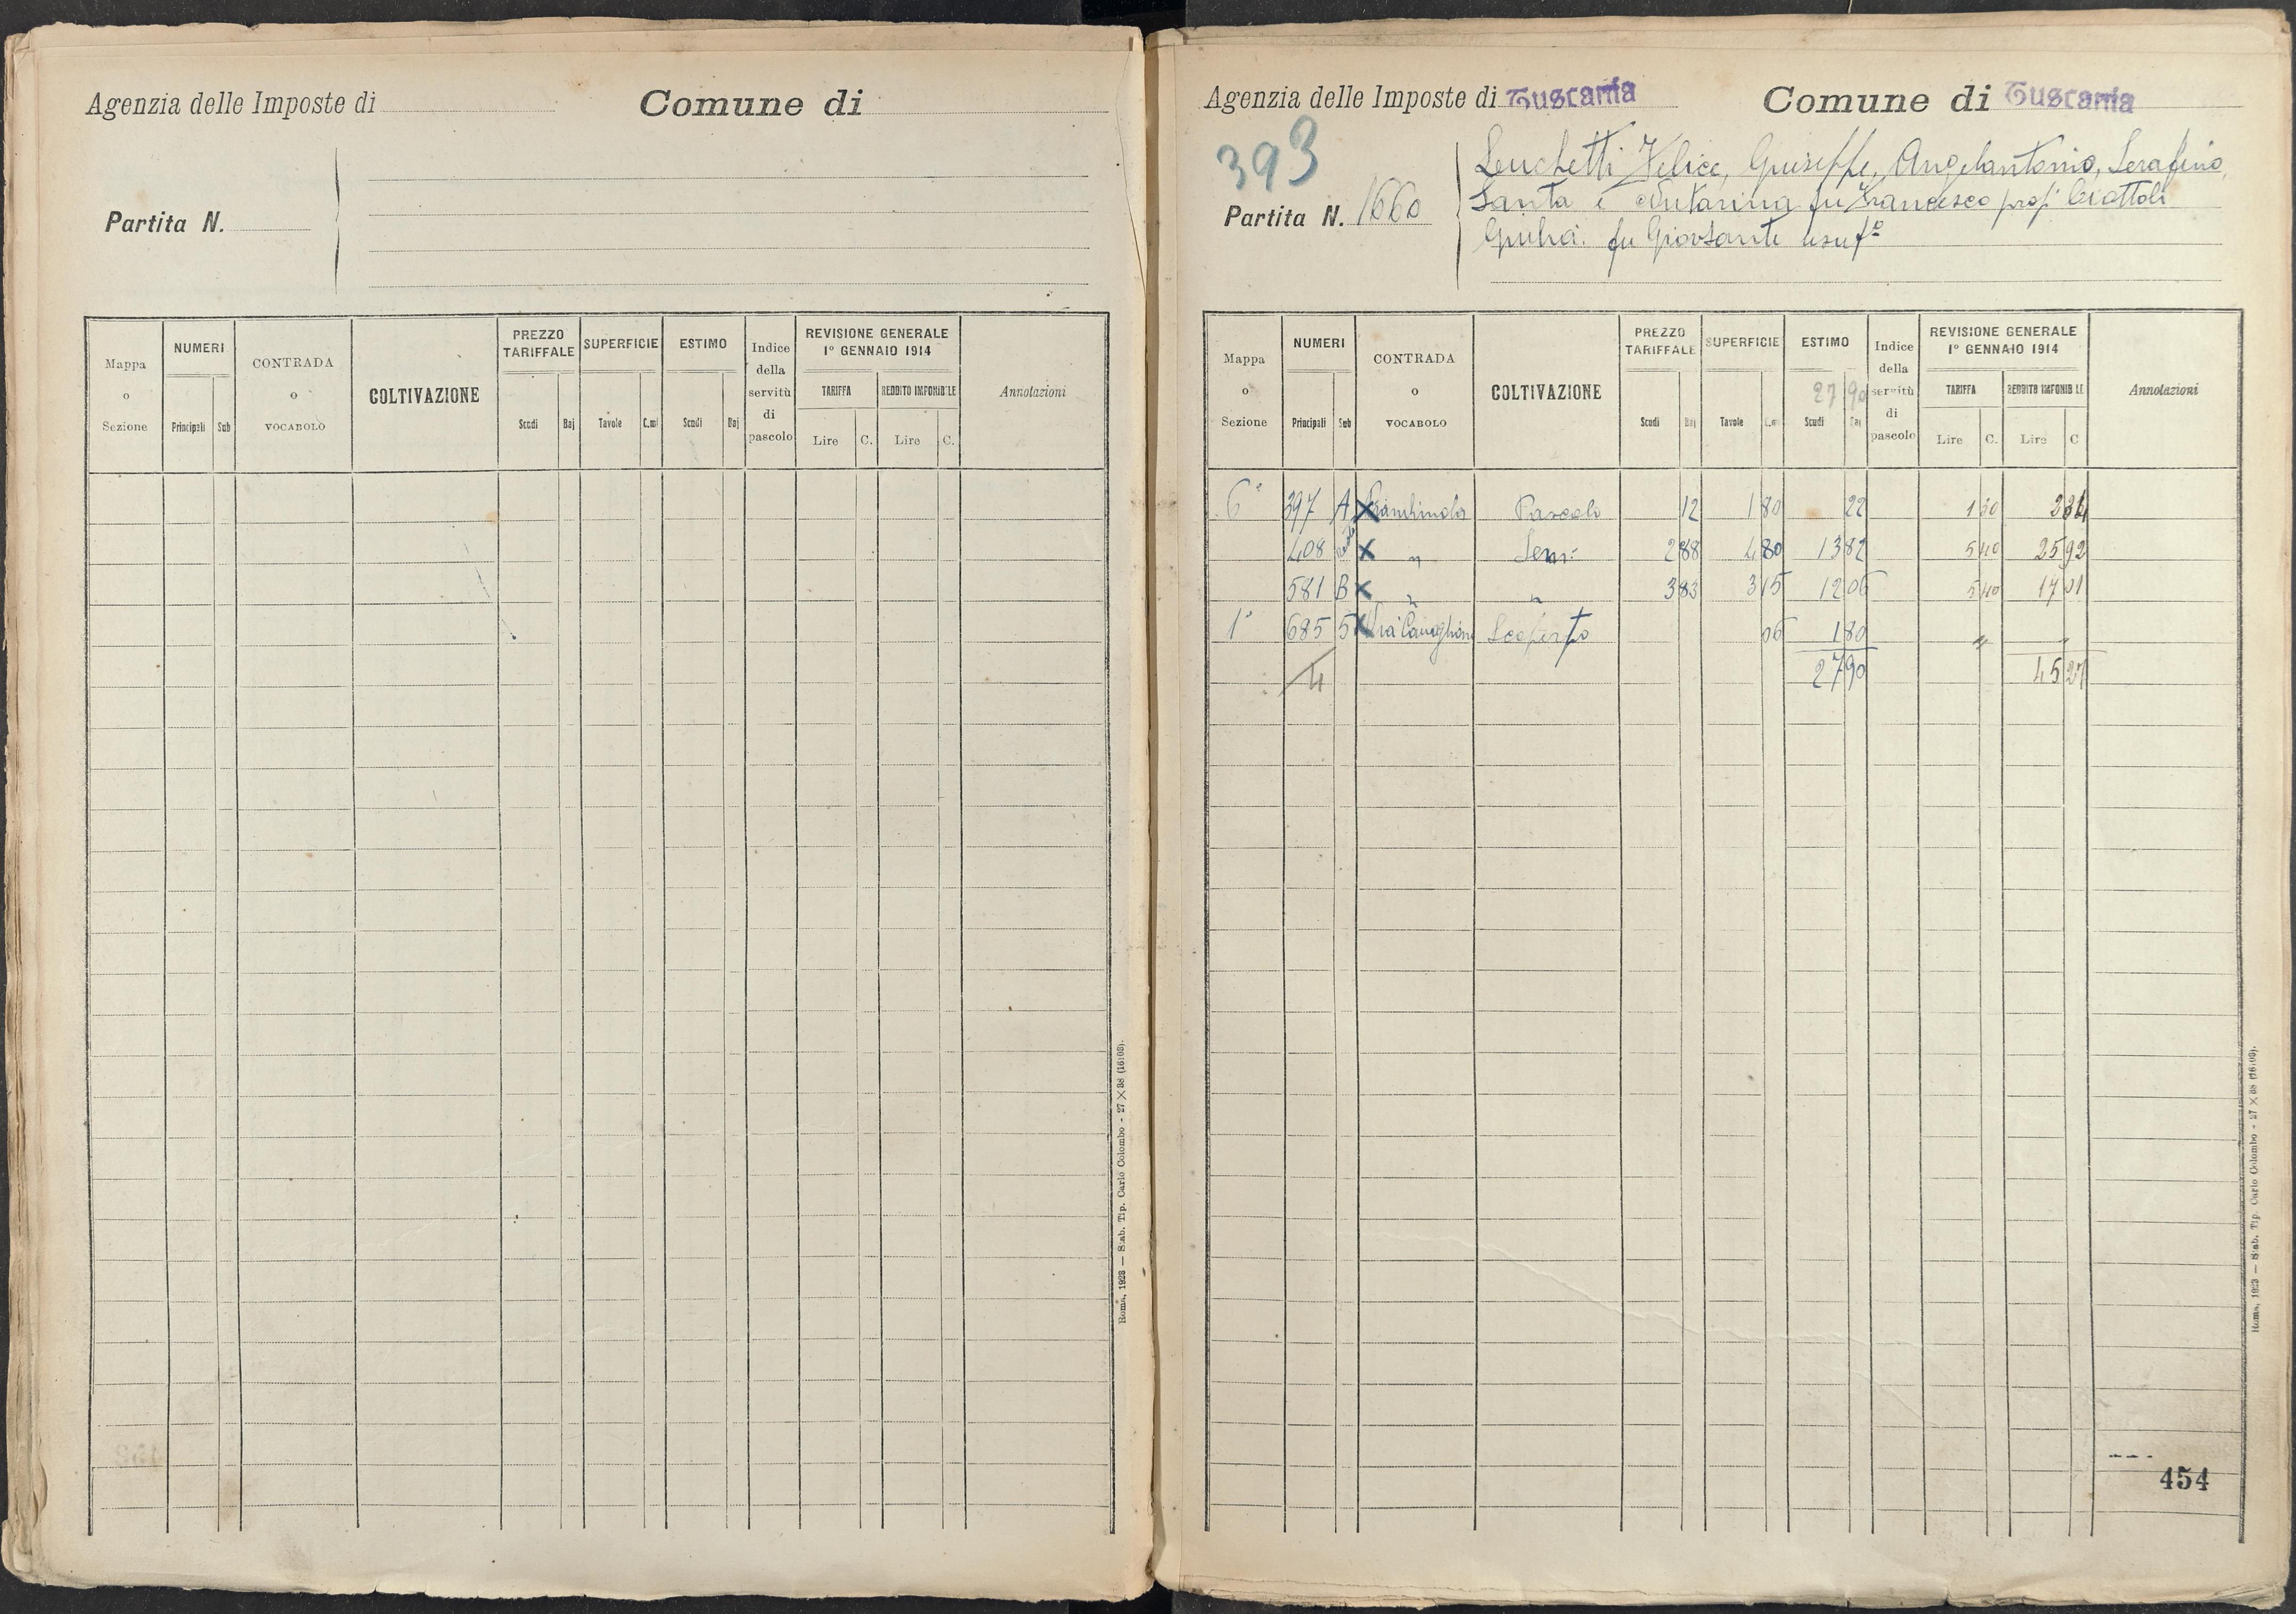 Agenzia delle Imposte di
Comune di
Partita N.
Mappa o Sezione
NUMERI
Principali
Sub
CONTRADA o VOCABOLO
COLTIVAZIONE
PREZZO TARIFFALE
Scudi
Baj
SUPERFICIE
Tavole
C.mi
ESTIMO
Scudi
Baj
Indice della servitù di pascolo
REVISIONE GENERALE
1º GENNAIO 1914
TARIFFA
REDDITO IMPONIBILE
Lire
C.
Lire
C.
Annotazioni
Roma, 1923 — Stab. Tip. Carlo Colombo - 27 X 38 (16:03).
Agenzia delle Imposte di Tuscania
Comune di Tuscania
393
Partita N. 1660
Felice, Giuseppe, Angelantonio, Serafino,
Santa e fu Francesco prop
Giulia fu usuf
Mappa o Sezione
NUMERI
Principali
Sub
CONTRADA o VOCABOLO
COLTIVAZIONE
PREZZO TARIFFALE
Scudi
Baj
SUPERFICIE
Tavole
C.mi
ESTIMO
27 90
Scudi
Baj
Indice della servitù di pascolo
REVISIONE GENERALE
1º GENNAIO 1914
TARIFFA
REDDITO IMPONIBILE
Lire
C.
Lire
C
Annotazioni
6ª 397 A X Pascolo 12 1 80 22 1 30 2 34
408 X " Sem: 2 88 4 80 13 82 5 40 25 92
581 B X " " 3 83 3 15 12 06 5 40 17 01
1ª 685 5 X Scoperto 06 1 80 " "
4 27 90 45 27
454
Roma, 1923 — Stab. Tip. Carlo Colombo - 27 X 38 (16:03).